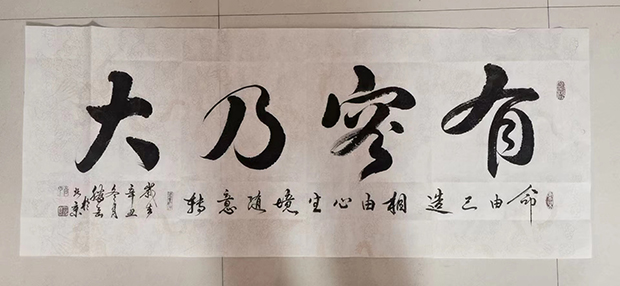 有容乃大
命由己造相由心生境随意转
歲在
辛丑
冬月
於
京